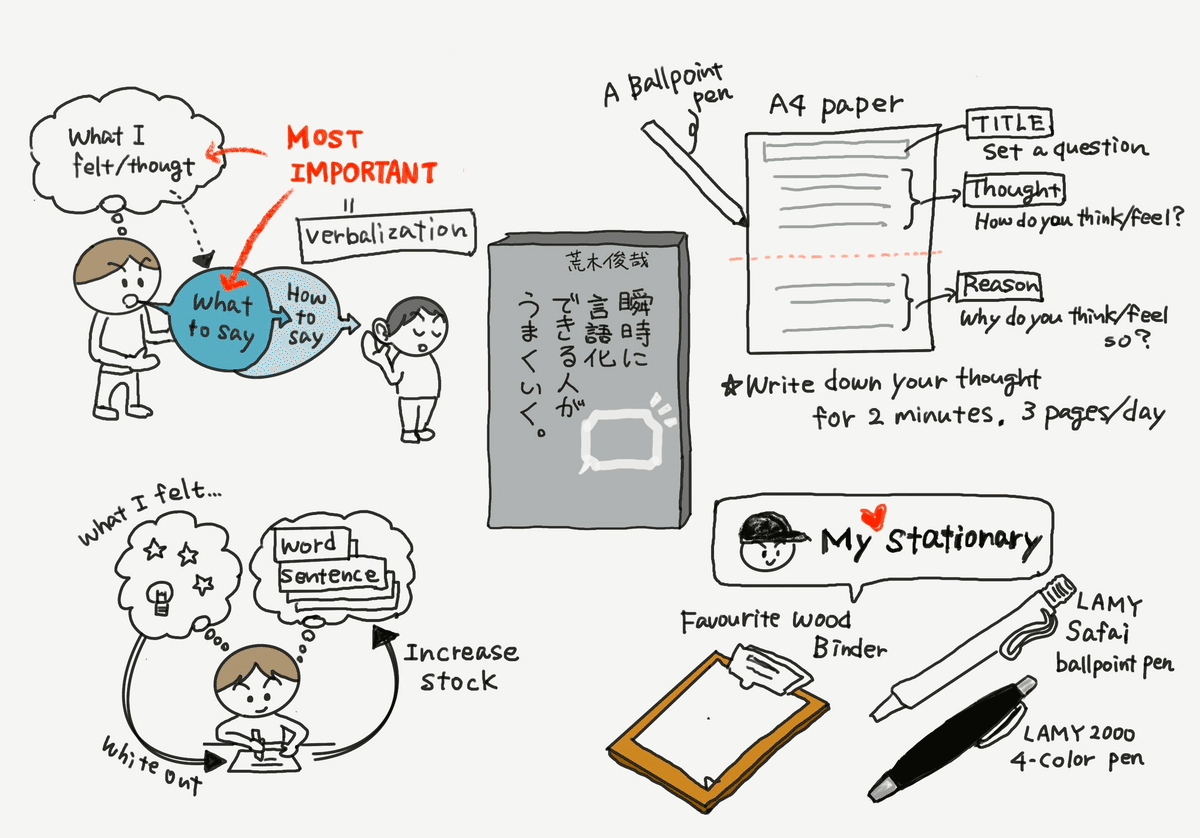 What I
felt/thougt
MOST
IMPORTANT
=
verbalization
What
to say
How
to
say
A Ballpoint
pen
A4 paper
TITLE
Set a question
Thought
How do you think/feel?
Reason
Why do you think/feel
so?
☆Write down your thought
for 2 minutes. 3 pages/day
荒木俊哉
瞬時に
言語化
できる人が
うまくいく。
What I felt...
word
sentence
Increase
stock
White out
My Stationary
Favourite wood
Binder
LAMY
Safai
ballpoint pen
LAMY 2000
4-color pen